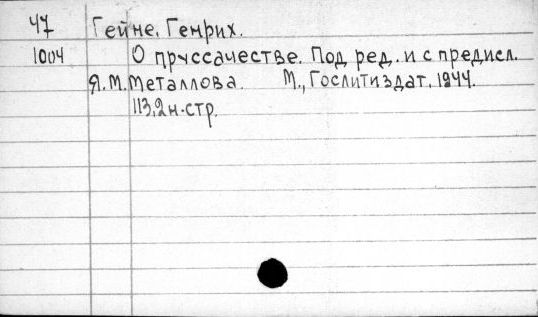 47 Гейне, Генрих.
1004 О пруссачестве. Под ред. и с предисл.
Я.М. Металлова. М., Гослитиздат, 1944.
113,2 н. стр.